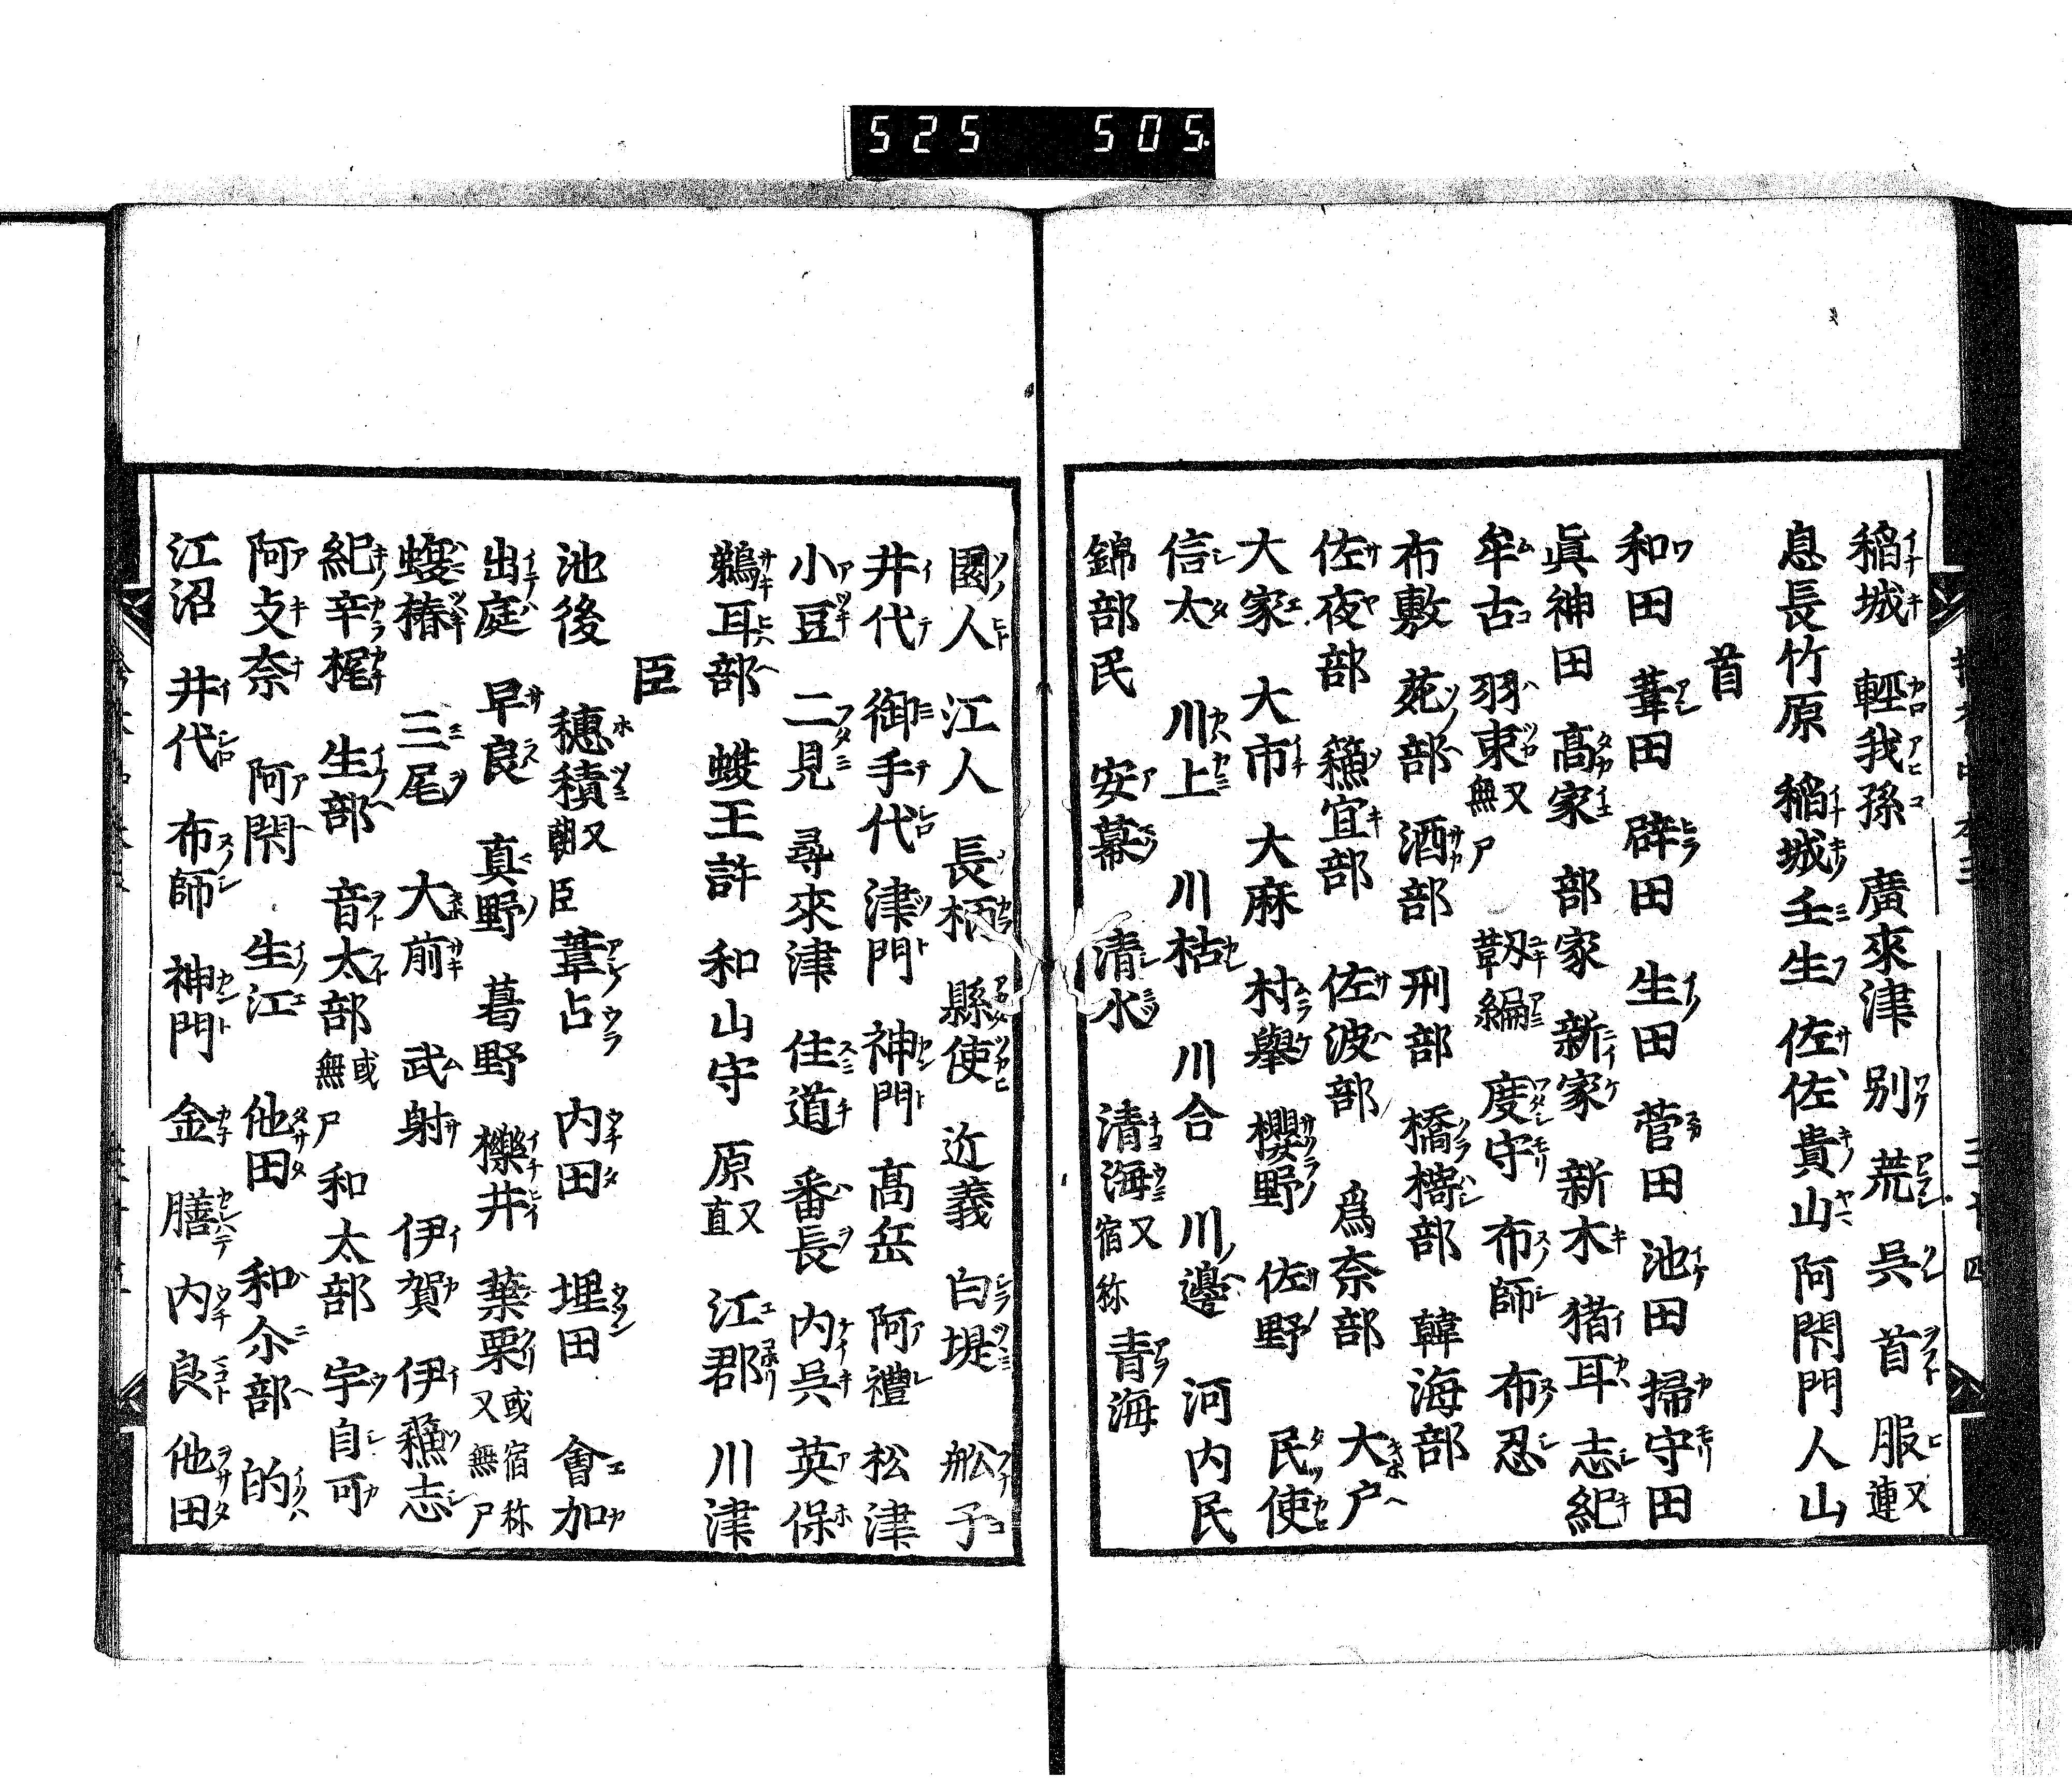 525 505
稲城 輕我孫 廣來津 别 荒 呉 首 服又連
息長竹原 稲城壬生 佐佐貴山 阿閇 門人 山
首
和田 葦田 辟田 生田 菅田 池田 掃守田
眞神田 髙家 部家 新家 新木 猪耳 志紀
牟古 羽束又無尸 靱編 度守 布師 布忍
布敷 苑部 酒部 刑部 橋部 韓海部
佐夜部 蘓宜部 佐波部 爲奈部 大戸
大家 大市 大麻 村舉 櫻野 佐野 民使
信太 川上 川枯 川合 川邊 河内民
錦部民 安幕 清水 清海又宿称 青海
園人 江人 長柄 縣使 近義 白堤 舩子
井代 御手代 津門 神門 髙岳 阿禮 松津
小豆 二見 尋來津 住道 番長 内呉 英保
鵜耳部 蝮王 許 和山守 原又直 江郡 川津
臣
池後 穗積又朝臣 葦占 内田 埋田 會加
出庭 早良 真野 葛野 櫟井 葉栗或宿称又無尸
蝮椿 三尾 大前 武射 伊賀 伊蘓志
紀辛梶 生部 音太部或無尸 和太部 宇自可
阿支奈 阿閇 生江 他田 和尒部 的
江沼 井代 布師 神門 金 膳 内 良 他田